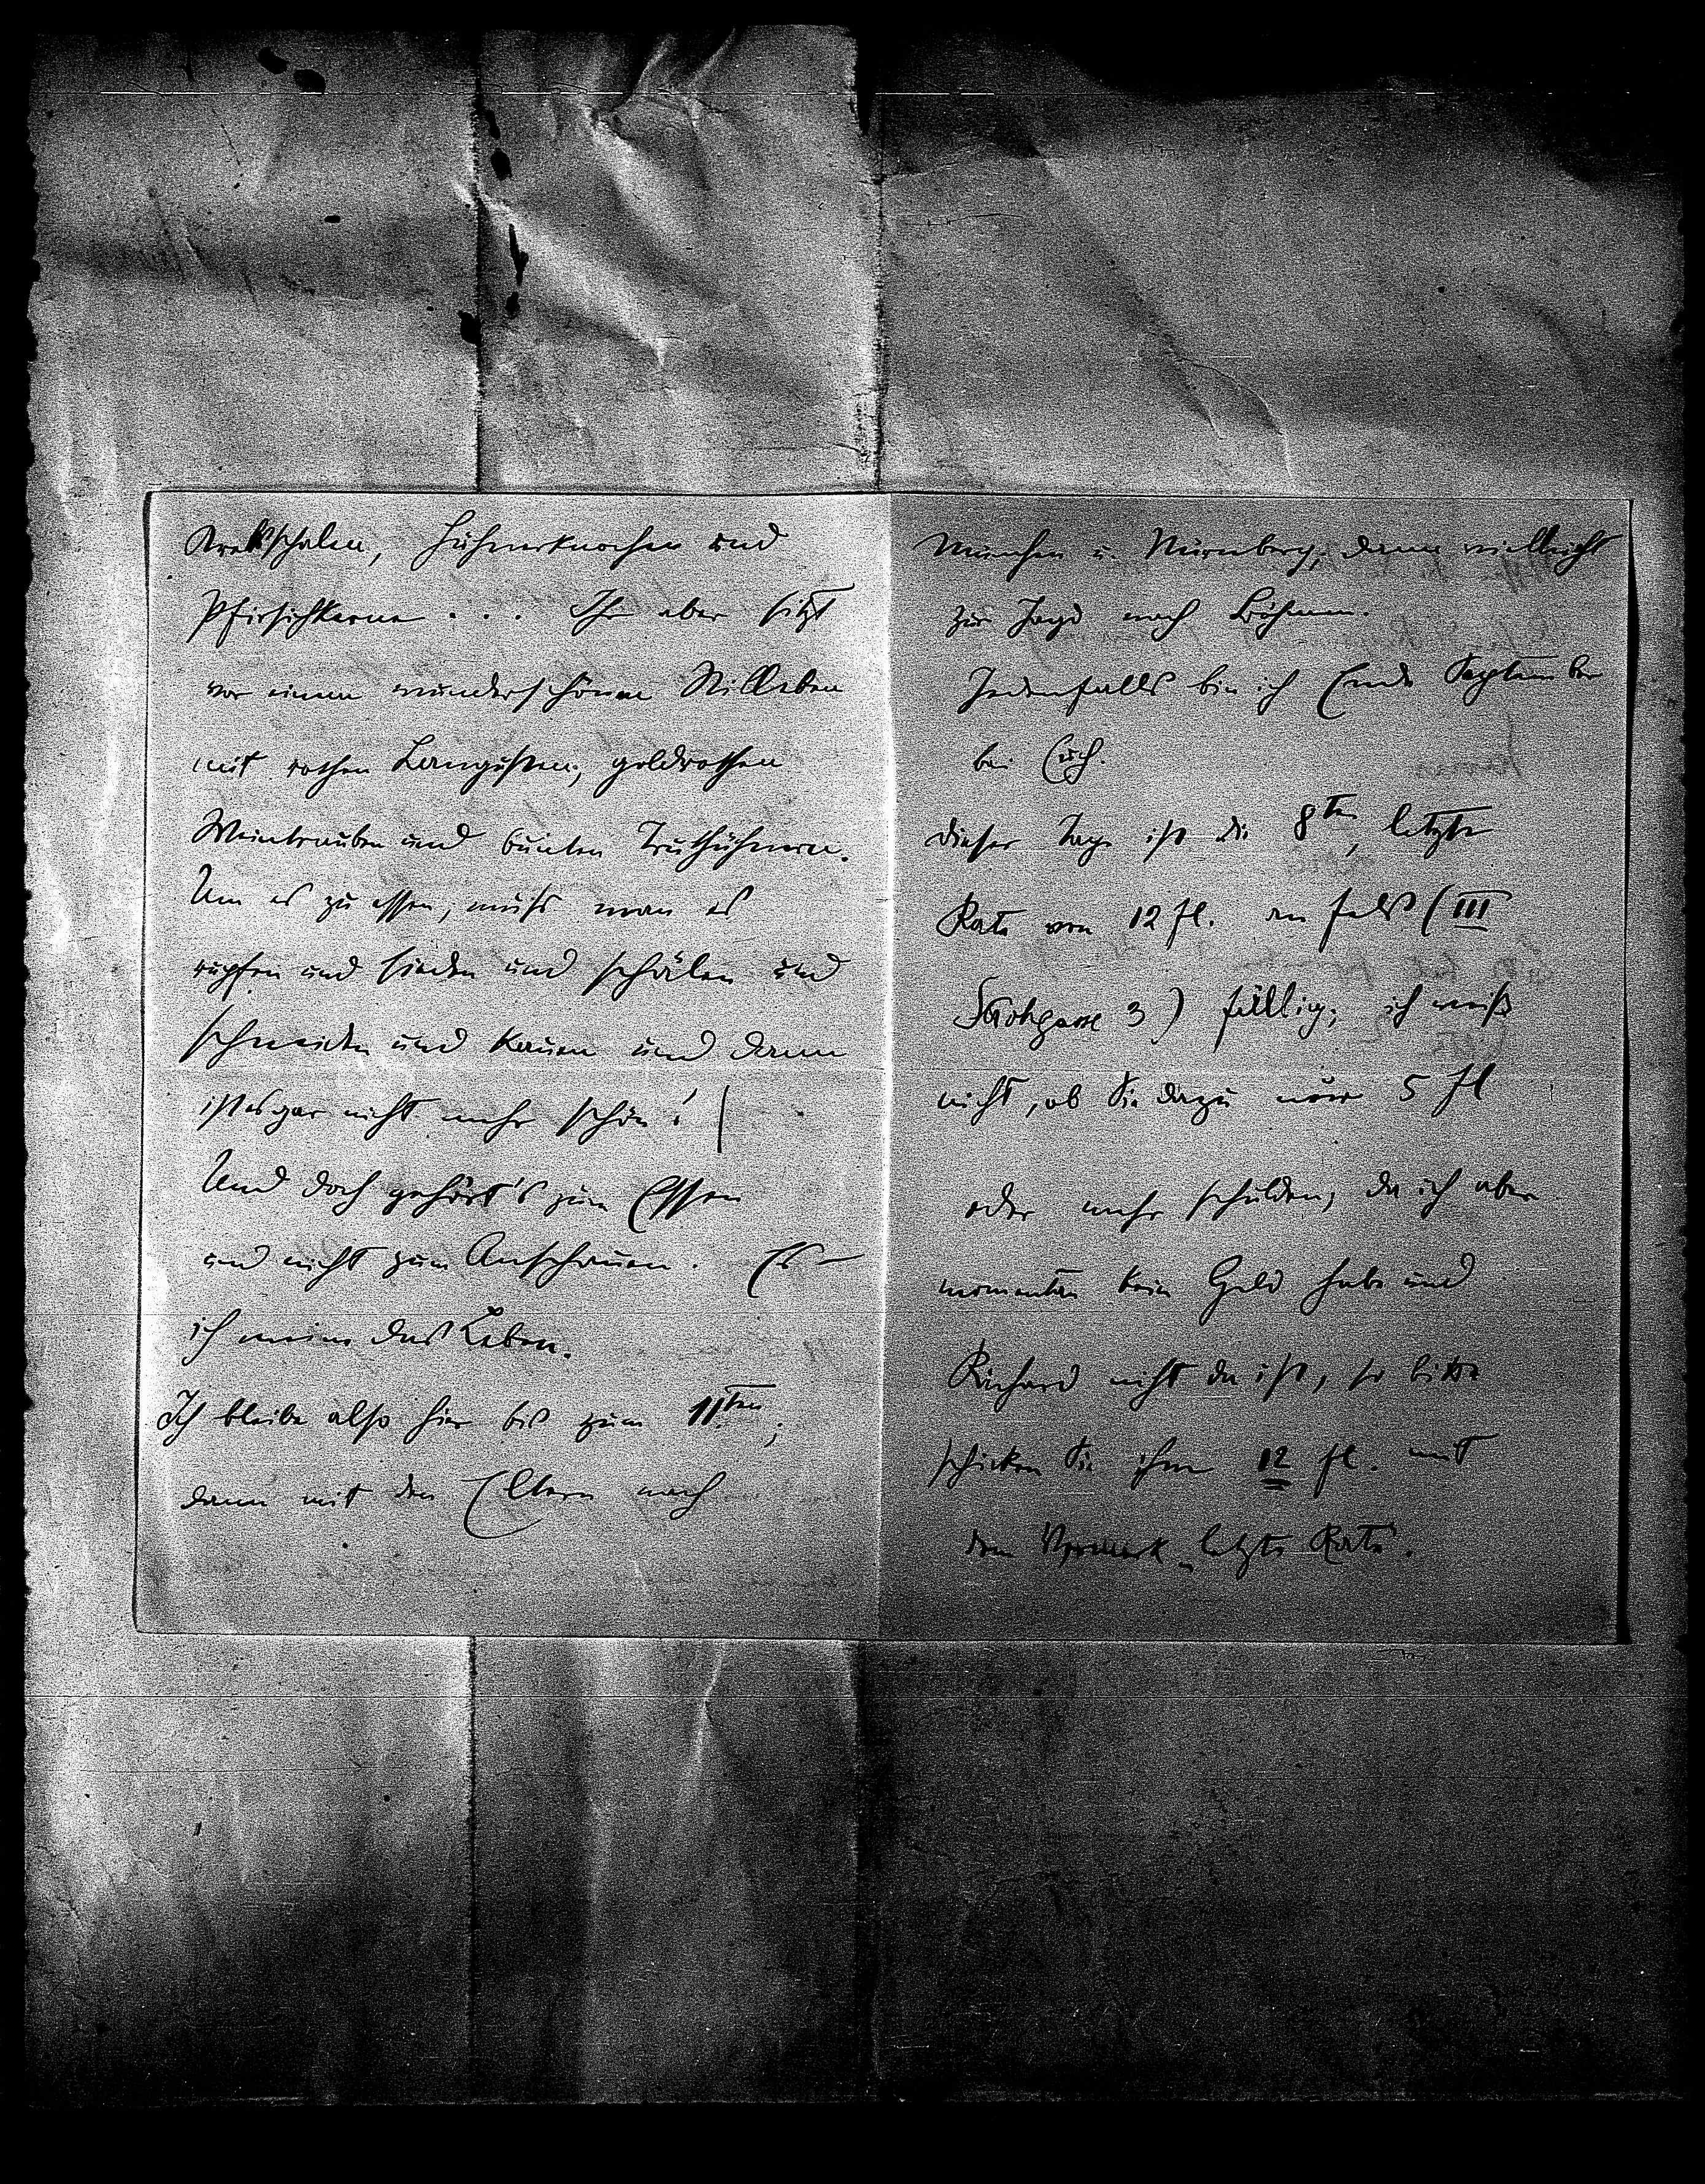 Krebsschalen, Hühnerknochen und
Pfirsichkerne . . . Ihr aber sitzt
vor einem wunderschönen Stilleben
mit rothen Langusten, goldrothen
Weintrauben und bunten Truthühnern.
Um es zu essen, muß man es
rupfen und sieden und schälen und
schneiden und kauen und dann
ist es gar nicht mehr schön!
Und doch gehört's zum Essen
und nicht zum Anschauen. Es –
ich meine das Leben.
Ich bleibe also hier bis zum 11ten;
dann mit den Eltern nach
München u. Nürnberg, dann vielleicht
zur Jagd nach Böhmen.
Jedenfalls bin ich Ende September
bei Euch.
Dieser Tage ist die 8te, letzte
Rate von 12 fl. an Fels (III
Strohgasse 3) fällig; ich weiß
nicht, ob Sie dazu nur 5 fl
oder mehr schulden, da ich aber
momentan kein Geld habe und
Richard nicht da ist, so bitte
schicken Sie ihm 12 fl. mit
dem Vermerk „letzte Rate".